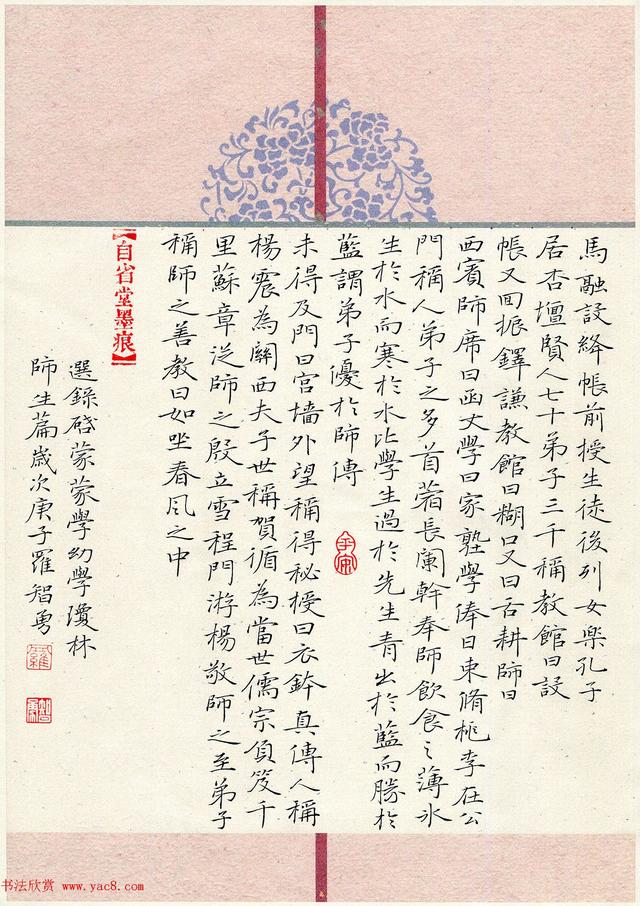 馬融設絳帳前授生徒後列女樂孔子
居杏壇賢人七十弟子三千稱教館曰設
帳又曰振鐸謙教館曰糊口又曰舌耕師曰
西賓師席曰函丈學曰家塾學俸曰束脩桃李在公
門稱人弟子之多首蓿長闌幹奉師飲食之薄冰
生於水而寒於水比學生過於先生青出於藍而勝於
藍謂弟子優於師傅
未得及門曰宮墻外望稱得秘授曰衣鉢真傳人稱
楊震為關西夫子世稱賀循為當世儒宗負笈千
里蘇章從師之殷立雪程門游楊敬師之至弟子
稱師之善教曰如坐春風之中
【自省堂墨痕】
選錄啓蒙蒙學幼學瓊林
師生篇歲次庚子羅智勇
羅
智勇
书法欣赏 www.yac8.com